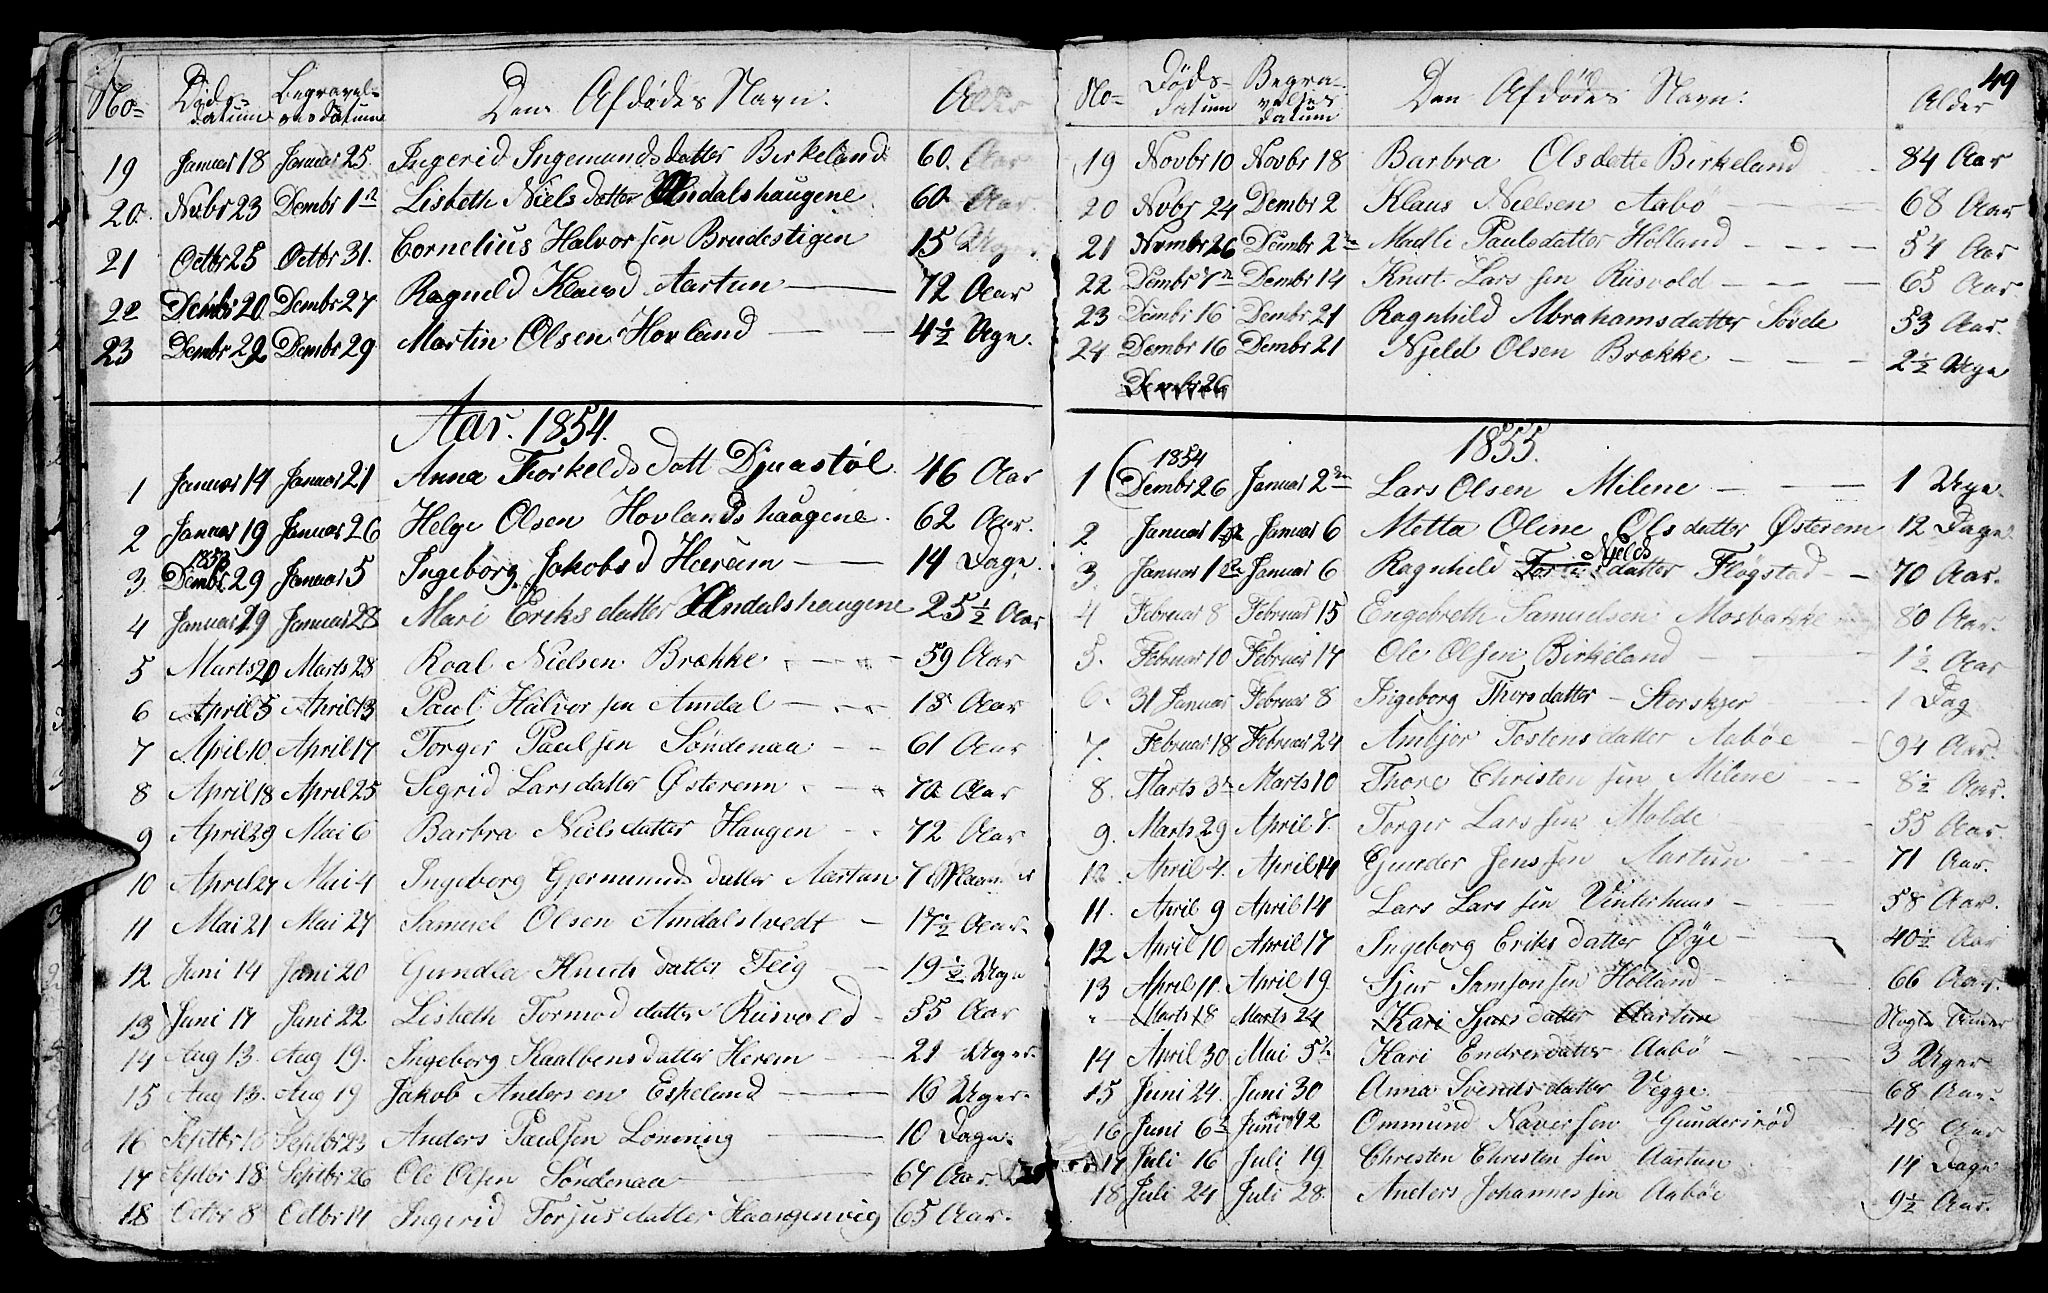 No= Døds= datum Begravel= ses datum Den Afdødes Navn: Alder
19 Januar 18 Januar 25. Ingerid Ingemundsdatter Birkeland 60. Aar
20. Novbr 23 Dembr 1n Lisbeth Nielsdatter Amdalshaugene 60 Aar.
21 Octbr 25 Octbr 31. Cornelius Halvorsen Brudestigen 15 Uger
22 Dembr 20 Dembr 27 Ragneld Klausd Aartun 72 Aar
23 Dembr 22 Dembr 29 Martin Olsen Hovland 4½ Uge.
Aar. 1854.
1 Januar 14 Januar 21 Anna Torkelds Datt Djuastøl 46 Aar
2 Januar 19 Januar 26 Helge Olsen Hovlandshaugene. 62 Aar.
1853
3 Dembr 29 Januar 5 Ingeborg Jakobsd Hærem 14 Dage.
4 Januar 19 Januar 28 Mari Eriksdatter Amdalshaugene 25½ Aar
5 Marts 20 Marts 28 Roal Nielsen Brække 59 Aar
6 April 5 April 13 Paul Halvorsen Amdal 18 Aar
7 April 10 April 17 Torger Paulsen Søndenaa 61 Aar
8 April 18 April 25 Segrid Larsdatter Østerem 70 Aar
9 April 29 Mai 6 Barbra Nielsdatter Haugen 72 Aar
10 April 27 Mai 4 Ingeborg Gjermunds datter Aartun 7
11 Mai 21 Mai 27 Samuel Olsen Amdalstvedt 17½ Aar.
12 Juni 14 Juni 20 Gundla Knuds datter Teig 19½ Uge
13 Juni 17 Juni 22 Lisbeth Tormod datter Riisvold 55 Aar
14 Aug 13. Aug 19. Ingeborg Kaalbensdatter Herem 21 Uger.
15 Aug 13. Aug 19 Jakob Andersen Espeland 16 Uger.
16 Septbr Septbr 23 Anders Paulsen Lønning 10 Dage.
17 Septbr 18 Septbr 26 Ole Olsen Søndenaa 67 Aar.
18 Octbr 8 Octbr 14 Ingerid Torjusdatter Kaangenvig 65 Aar.
49
No= Døds= datum Begra= velses datum Den Afdødes Navn: Alder
19 Novbr 10 Novbr 18 Barbra Olsdatte Birkeland 84 Aar
20 Novbr 24 Dembr 2 Klaus Nielsen Aabø 68 Aar
21 Nvmbr 26 Dembr 2 Madli Paulsdatter Holland 54 Aar
22 Dembr 7n Dembr 14 Knut Larssen Riisvold 65 Aar
23 Dembr 16 Dembr 21 Ragnhild Abrahamsdatter Søde 53 Aar.
24 Dembr 16 Dembr 21 Njeld Olsen Brække 2½ Uge
Dembr 26
1855.
1854
1 Dembr 26 Januar 2 Lars Olsen Milene 1 Uge.
2. Januar 1 Januar 6 Metta Oline Olsdatter Østerem 12 Dage.
Njelds
3. Januar 1 Januar 6 Ragnhild datter Fløgstad 70 Aar.
4 Februar 8 Februar 15 Engebreth Samuelsen Mosbakke 80 Aar.
5. Februar 10 Februar 17 Ole Olsen Birkeland 1½ Aar
6. 31 Januar Februar 8 Ingeborg Thorsdatter Storskjer 1 Dag
7. Februar 18 Februar 24 Ambjør Tostensdatter Aabøe 94 Aar
8. Marts 3 Marts 10 Thore Christensen Milene 8½ Aar.
9. Marts 29 April 7. Torger Larssen Molde 55 Aar.
10. April 4. April 14 Gunder Jenssen Aartun 71 Aar.
11. April 9 April 14 Lars Larssen Vinterhuus 58 Aar.
12 April 10 April 17 Ingeborg Eriksdatter Øye 40½ Aar
13 April 11. April 19. Sjur Samsonsen Holland 66 Aar.
" Marts 18 Marts 24 Kari Sjurs datter Aartun Nogle Timer
14 April 30 Mai 5 Kari Endresdatter Aabø 3 Uger
15 Juni 24. Juni 30 Anna Svends datter Vegge 68 Aar.
16 Juni 6 Juni 12 Ommund Naversen Gunderirød 48 Aar
17 Juli 16 Juli 19 Christen Christensen Aartun 14 Dage
18 Juli 24 Juli 28. Anders Johannessen Aabøe 9½ Aar.